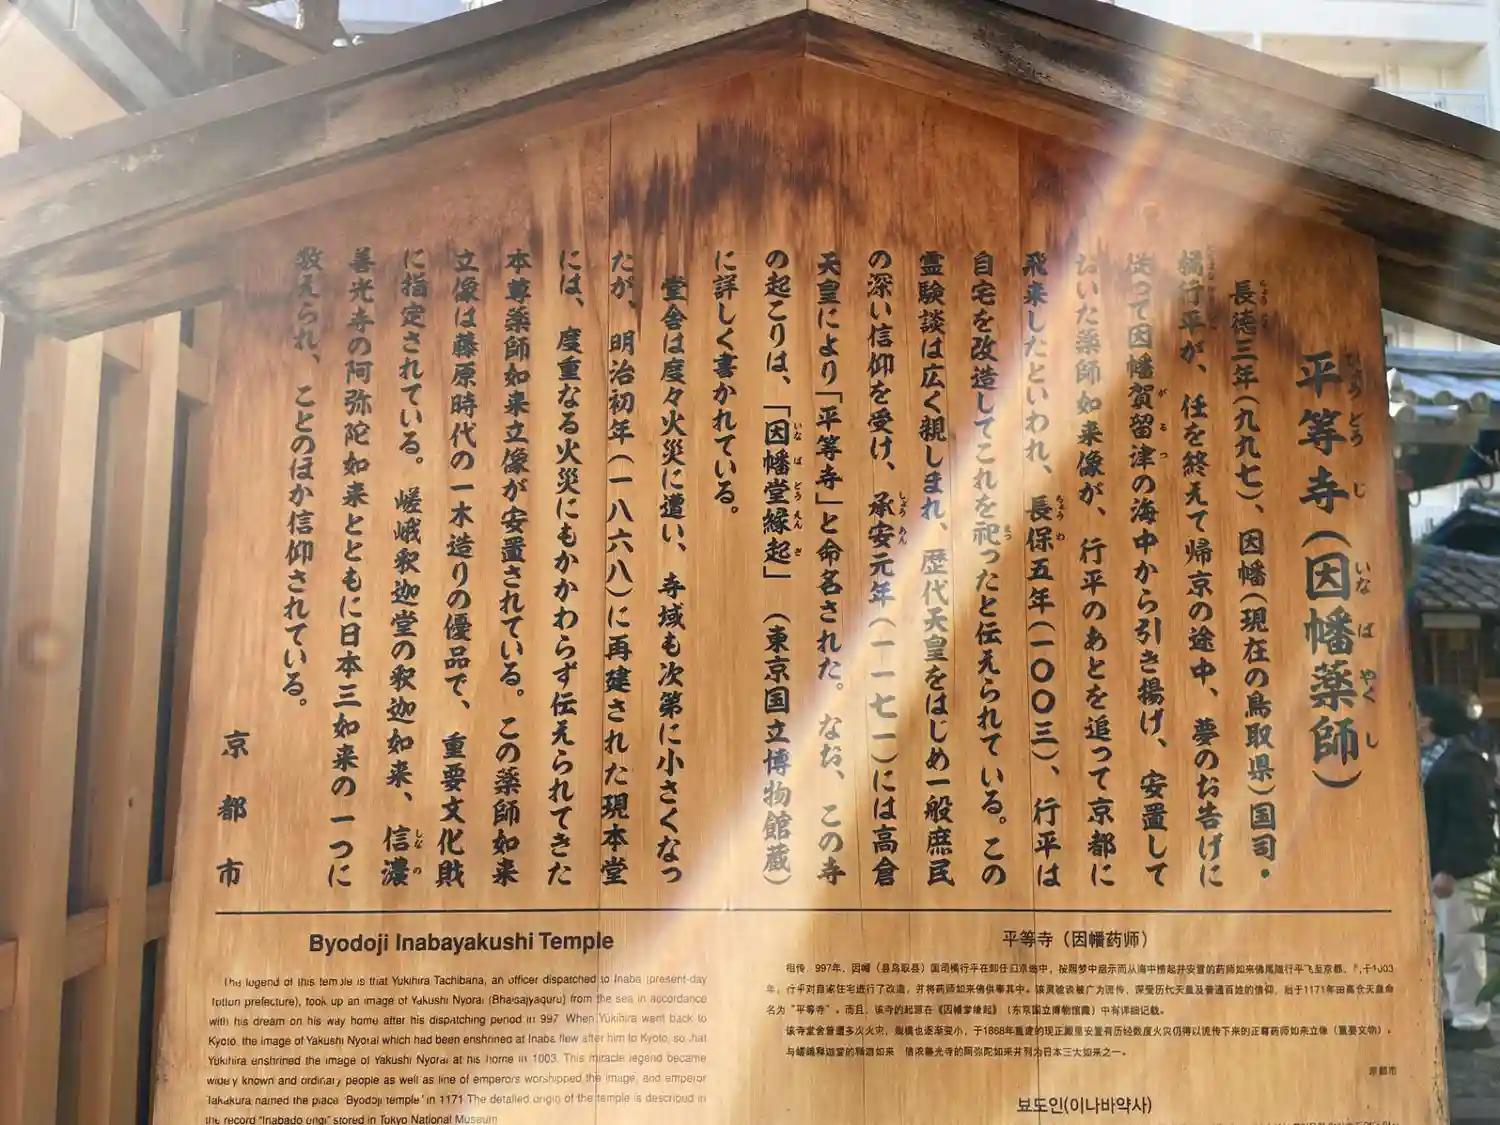 平等寺(因幡薬師)
長徳三年(九九七)、因幡(現在の鳥取県)国司・
橘行平が、任を終えて帰京の途中、夢のお告げに
従って因幡賀留津の海中から引き揚げ、安置して
おいた薬師如来像が、行平のあとを追って京都に
飛来したといわれ、長保五年(一〇〇三)、行平は
自宅を改造してこれを祀ったと伝えられている。この
霊験談は広く親しまれ、歴代天皇をはじめ一般庶民
の深い信仰を受け、承安元年(一一七一)には高倉
天皇により「平等寺」と命名された。なお、この寺
の起こりは、「因幡堂縁起」(東京国立博物館蔵)
に詳しく書かれている。
堂舎は度々火災に遭い、寺域も次第に小さくなっ
たが、明治初年(一八六八)に再建された現本堂
には、度重なる火災にもかかわらず伝えられてきた
本尊薬師如来立像が安置されている。この薬師如来
立像は藤原時代の一木造りの優品で、重要文化財
に指定されている。嵯峨釈迦堂の釈迦如来、信濃
善光寺の阿弥陀如来とともに日本三如来の一つに
数えられ、ことのほか信仰されている。
京都市
Byodoji Inabayakushi Temple
The legend of this temple is that Yukihira Tachibana, an officer dispatched to Inaba (present-day
Tottori prefecture), took up an image of Yakushi Nyorai (Bhaisajyaguru) from the sea in accordance
with his dream on his way home after his dispatching period in 997. When Yukihira went back to
Kyoto, the image of Yakushi Nyorai which had been enshrined at Inaba flew after him to Kyoto, so that
Yukihira enshrined the image of Yakushi Nyorai at his home in 1003. This miracle legend became
widely known and ordinary people as well as line of emperors worshipped the image, and emperor
Takakura named the place 'Byodoji temple' in 1171. The detailed origin of the temple is described in
the record "Inabado engi" stored in Tokyo National Museum
平等寺（因幡药师）
祖传，997年，因幡（县鸟取县）国司橘行平在卸任归京途中，按照梦中启示而从海中捞起并安置的药师如来佛尾随行平飞至京都，于1003
年，行平对自家住宅进行了改造，并将药师如来佛供奉其中。该灵验谈被广为流传，深受历代天皇及普通百姓的信仰，后于1171年由高仓天皇命
名为“平等寺”。而且，该寺的起源在《因幡堂缘起》（东京国立博物馆藏）中有详细记载。
该寺堂舍曾遭多次火灾，规模也逐渐变小，于1868年重建的现正殿里安置有历经数度火灾仍得以流传下来的正尊药师如来立像（重要文物）。
与嵯峨释迦堂的释迦如来 信浓善光寺的阿弥陀如来并列为日本三大如来之一。
京都市
보도인(이나바약사)